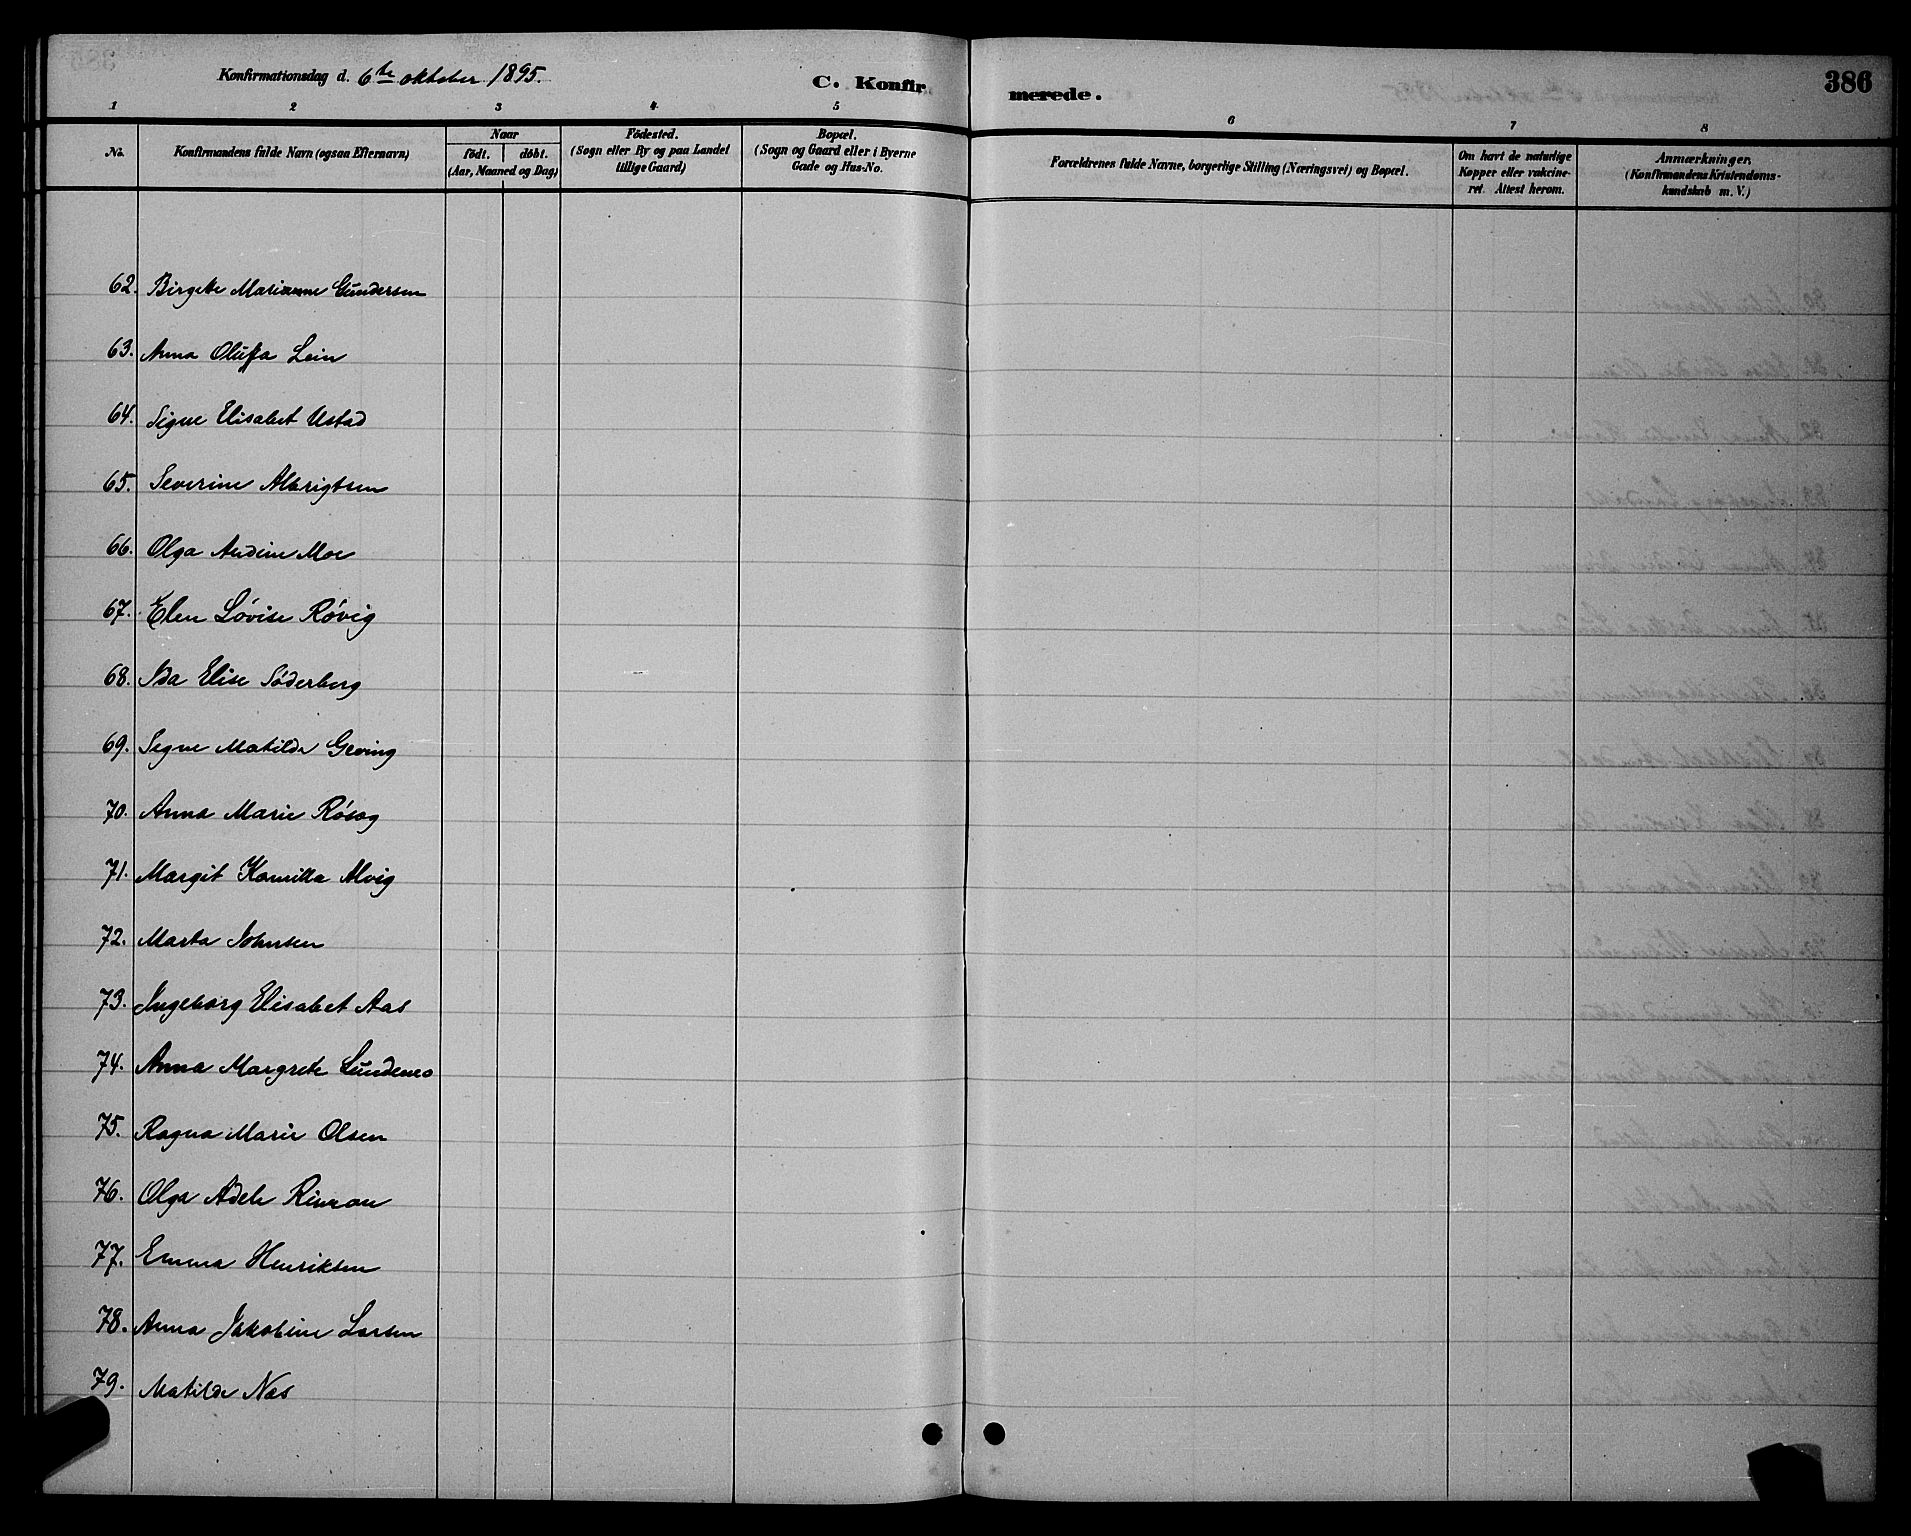 Konfirmationsdag d. 6te oktober 1895.
C. Konfirmerede.
386
1 2 3 4 5 6 7 8
No.
Konfirmandens fulde Navn (ogsaa Efternavn)
Naar
födt. döbt.
(Aar, Maaned og Dag)
Födested.
(Sogn eller By og paa Landet
tillige Gaard)
Bopæl.
(Sogn og Gaard eller i Byerne
Gade og Hus-No.
Forældrenes fulde Navne, borgerlige Stilling (Næringsvei) og Bopæl.
Om havt de naturlige
Kopper eller vakcine-
ret. Attest herom.
Anmærkninger.
(Konfirmandens Kristendoms-
kundskab m. V.)
62. Birgete Marianne Gundersen
63. Anna Oluffa Lein
64. Signe Elisabet Ustad
65. Severine Albrigtsen
66. Olga Andine Moe
67. Elen Lovise Røvig
68. Ida Elise Søderberg
69. Signe Matilde Greving
70. Anna Marie Røsög
71. Margit Kamilla Alvig
72. Marta Johnsen
73. Ingeborg Elisabet Aas
74. Anna Margrete Lundenes
75. Ragna Marie Olsen
76. Olga Adele
77. Emma Henriksen
78. Anna Jakobine Larsen
79. Matilde Nas